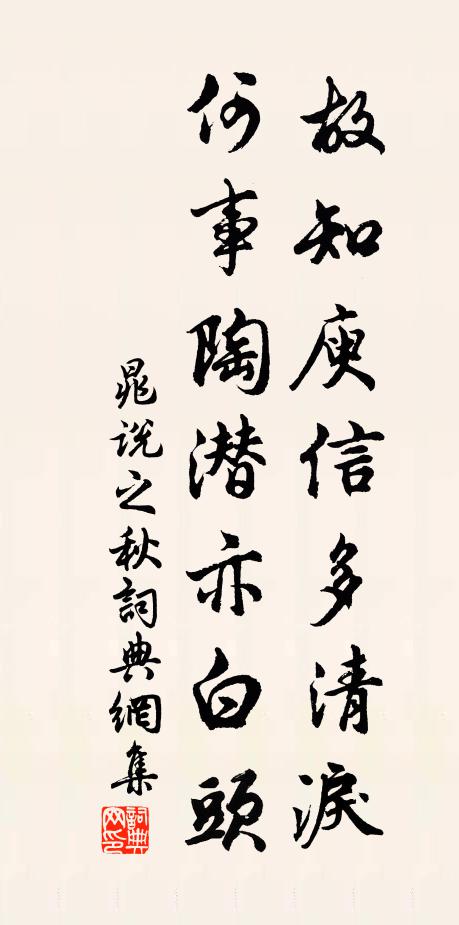 故知庾信多清淚
何事陶潛亦白頭
晁說之秋詞典網集
詞典网印